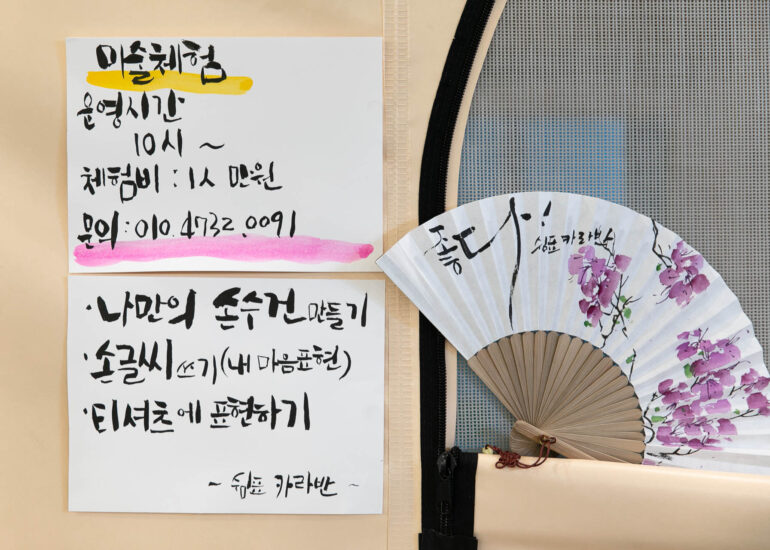 미술체험
운영시간
10시 ~
체험비 : 1人 만원
문의 : 010.4732.0091
· 나만의 손수건 만들기
· 손글씨 쓰기 (내 마음표현)
· 티셔츠에 표현하기
~ 쉼표 카라반 ~
좋다!
쉼표 카라반